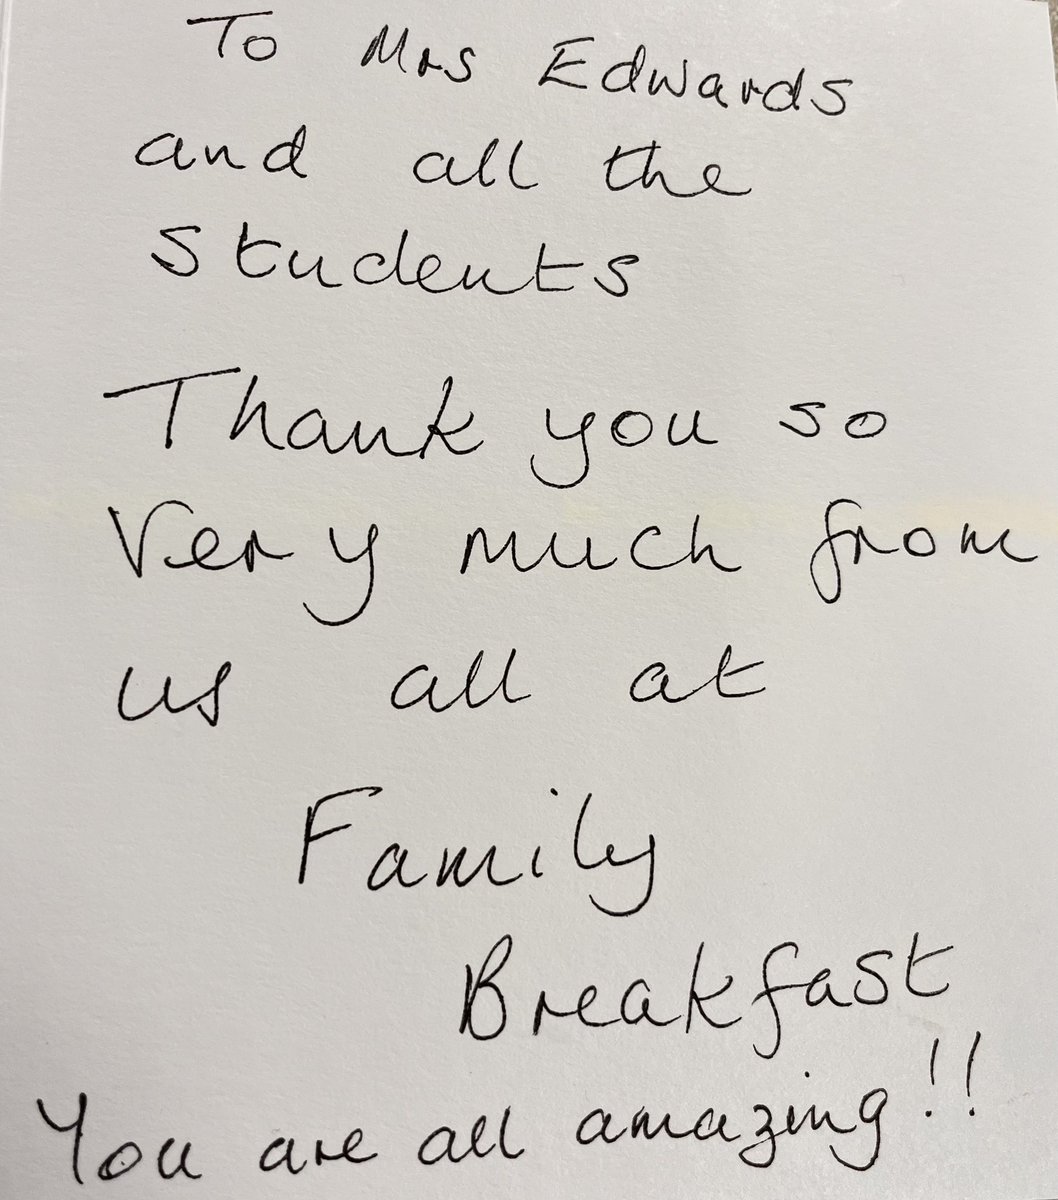 To Mrs Edwards
and all the
students
Thank you so
very much from
us all at
Family
Breakfast
You are all amazing!!